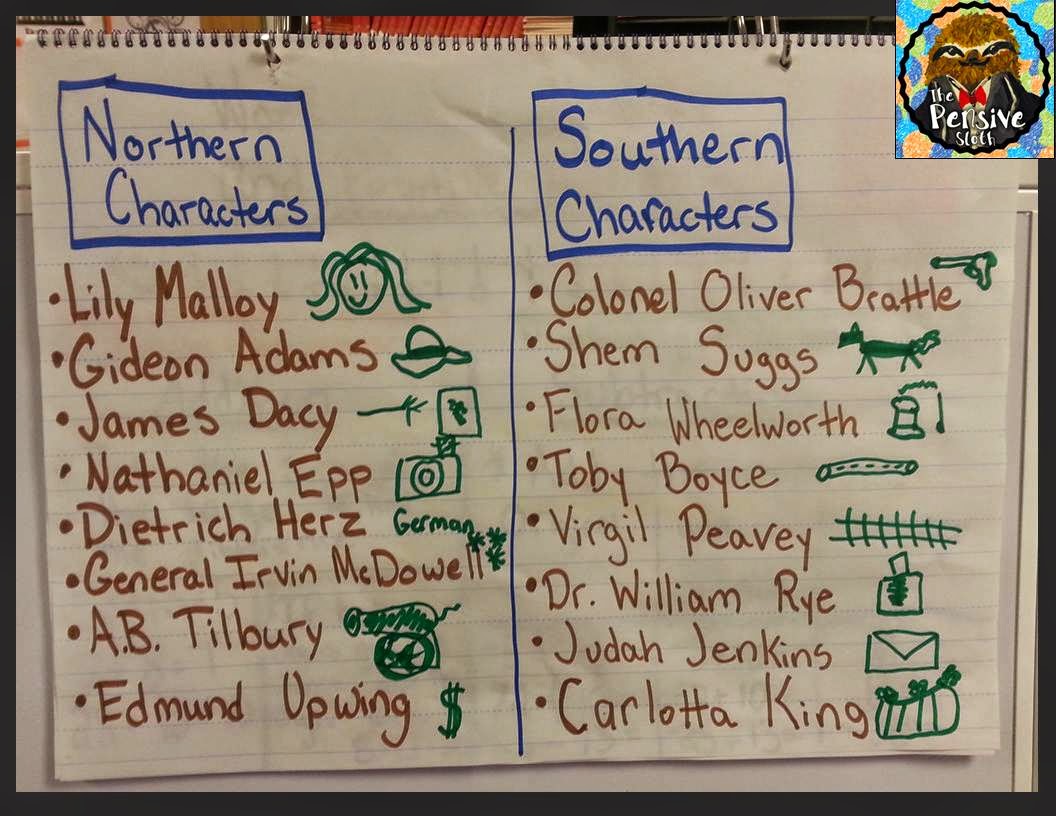 Northern
Characters
• Lily Malloy
• Gideon Adams
• James Dacy
• Nathaniel Epp
• Dietrich Herz German
• General Irvin McDowell
• A.B. Tilbury
• Edmund Upwing $
Southern
Characters
• Colonel Oliver Brattle
• Shem Suggs
• Flora Wheelworth
• Toby Boyce
• Virgil Peavey
• Dr. William Rye
• Judah Jenkins
• Carlotta King
The
Pensive
Sloth